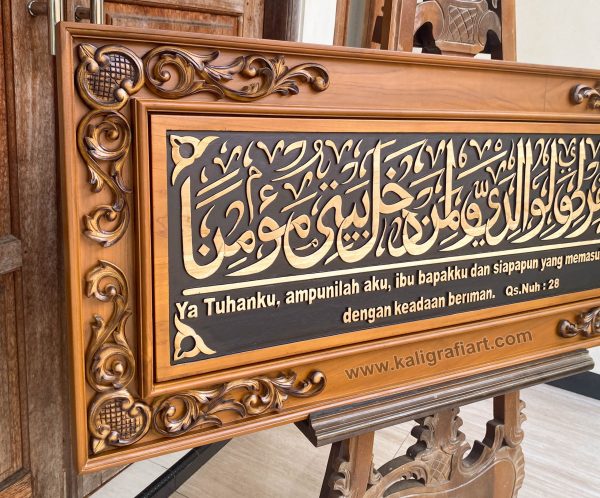 لي ولوالدي ولمن دخل بيتي مؤمنا
Ya Tuhanku, ampunilah aku, ibu bapakku dan siapapun yang memasu
dengan keadaan beriman. Qs.Nuh : 28
www.kaligrafiart.com